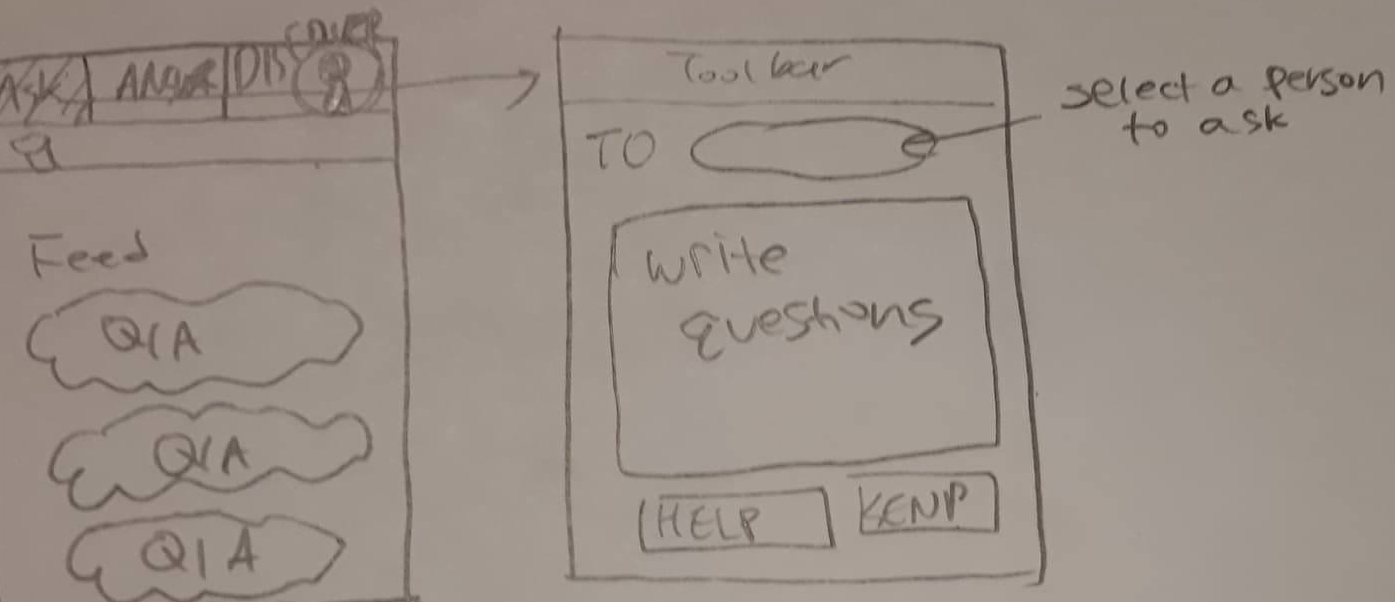 ASK ANSWER DISCOVER
Feed
Q/A
Q/A
Q/A
Toolbar
TO
select a person
to ask
write
questions
HELP